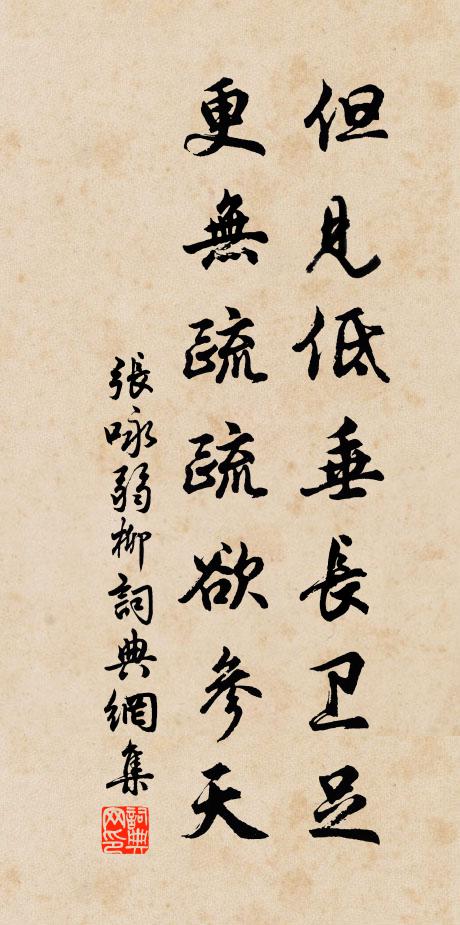 但見低垂長卫足
更無疏疏欲參天
張咏弱柳詞典網集
詞典网印